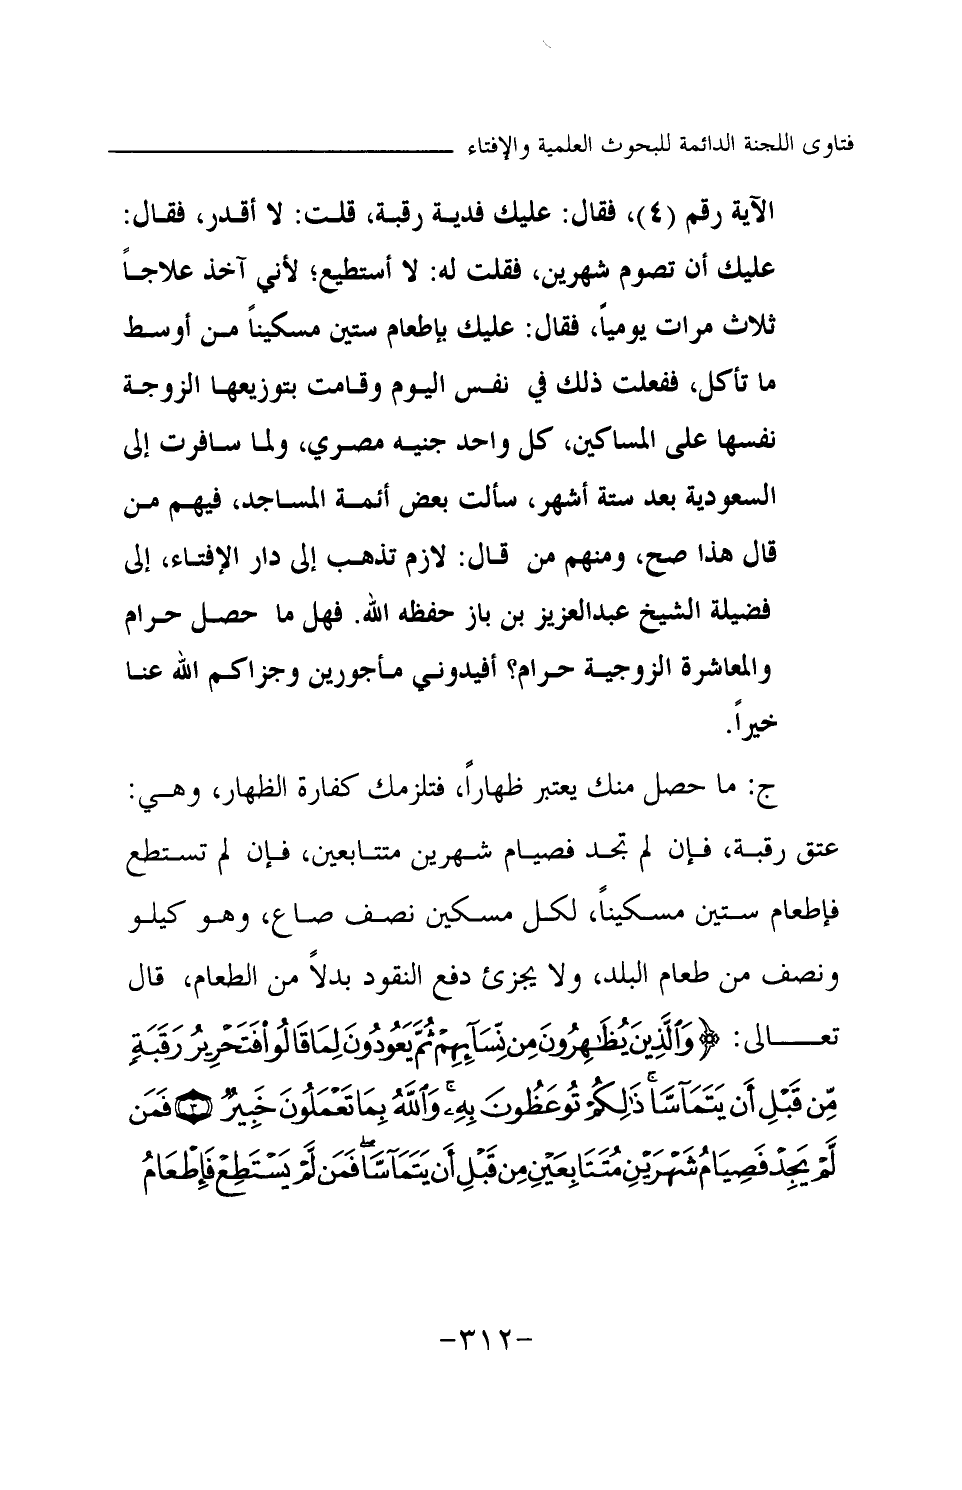 فتاوى اللجنة الدائمة للبحوث العلمية والإفتاء
الآية رقم (٤)، فقال: عليك فدية رقبة، قلت: لا أقدر، فقال:
عليك أن تصوم شهرين، فقلت له: لا أستطيع؛ لأني آخذ علاجاً
ثلاث مرات يومياً، فقال: عليك بإطعام ستين مسكيناً من أوسط
ما تأكل، ففعلت ذلك في نفس اليوم وقامت بتوزيعها الزوجة
نفسها على المساكين، كل واحد جنيه مصري، ولما سافرت إلى
السعودية بعد ستة أشهر، سألت بعض أئمة المساجد، فيهم من
قال هذا صح، ومنهم من قال: لازم تذهب إلى دار الإفتاء، إلى
فضيلة الشيخ عبدالعزيز بن باز حفظه الله. فهل ما حصل حرام
والمعاشرة الزوجية حرام؟ أفيدوني مأجورين وجزاكم الله عنا
خيراً.
ج: ما حصل منك يعتبر ظهاراً، فتلزمك كفارة الظهار، وهي:
عتق رقبة، فإن لم تجد فصيام شهرين متتابعين، فإن لم تستطع
فإطعام ستين مسكيناً، لكل مسكين نصف صاع، وهو كيلو
ونصف من طعام البلد، ولا يجزئ دفع النقود بدلاً من الطعام، قال
تعالى: ﴿وَٱلَّذِينَ يُظَٰهِرُونَ مِن نِّسَآئِهِمْ ثُمَّ يَعُودُونَ لِمَا قَالُوا۟ فَتَحْرِيرُ رَقَبَةٍ
مِّن قَبْلِ أَن يَتَمَآسَّا ۚ ذَٰلِكُمْ تُوعَظُونَ بِهِۦ ۚ وَٱللَّهُ بِمَا تَعْمَلُونَ خَبِيرٌ ﴿٣﴾ فَمَن
لَّمْ يَجِدْ فَصِيَامُ شَهْرَيْنِ مُتَتَابِعَيْنِ مِن قَبْلِ أَن يَتَمَآسَّا ۖ فَمَن لَّمْ يَسْتَطِعْ فَإِطْعَامُ
-٣١٢-